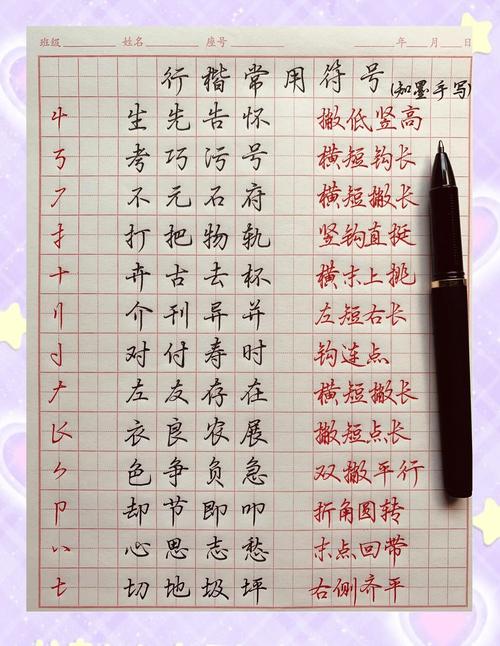 班级 姓名 座号 年 月 日
行楷常用符号(知墨手写)
生先告怀 撇低竖高
考巧污号 横短钩长
不元石府 横短撇长
打把物轨 竖钩直挺
卉古去杯 横末上挑
介刊异并 左短右长
对付寿时 钩连点
左友存在 横短撇长
衣良农展 撇短点长
色争负急 双撇平行
卩 却节即叩 折角圆转
心思志愁 末点回带
切地圾坪 右侧齐平